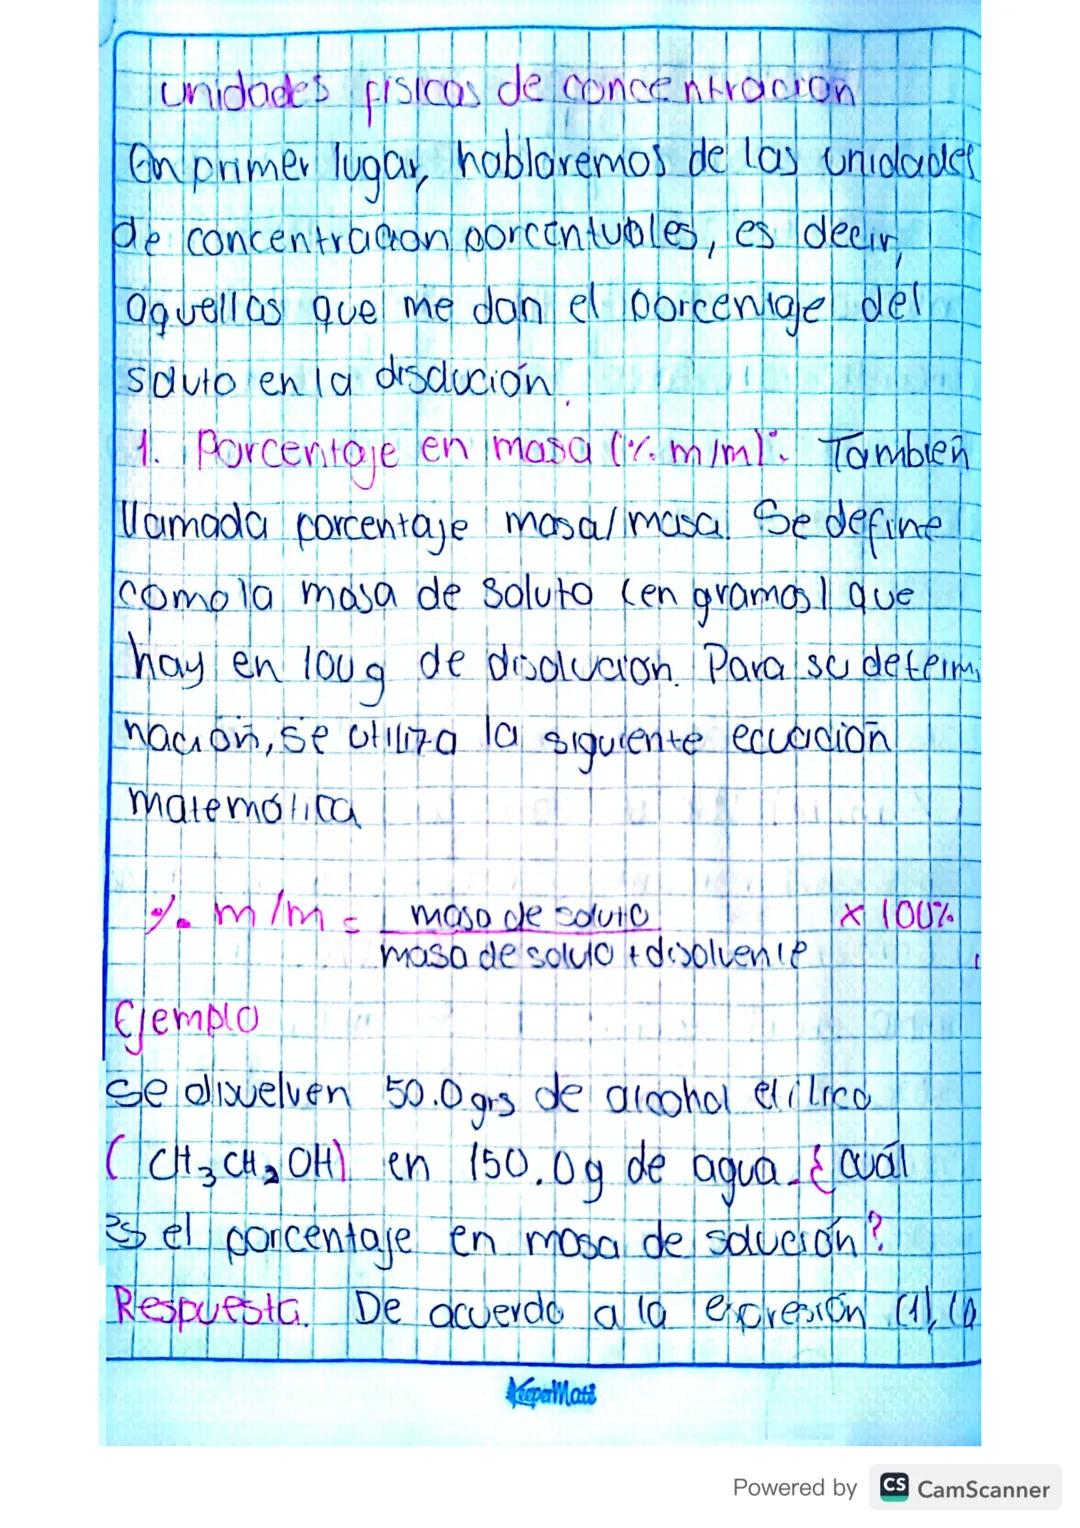 unidades fisicas de concentracion
En primer lugar, hablaremos de las unidades
de concentracion porcentuales, es decir,
aquellas que me dan el porcentaje del
soluto en la disolución.
1. Porcentaje en masa (% m/m): También
llamada porcentaje masa/masa. Se define
como la masa de soluto (en gramos) que
hay en 100g de disolucion. Para su determi
nación, se utiliza la siguiente ecuación
matemática
% m/m = masa de soluto x 100%
masa de soluto + disolvente
Ejemplo
Se disuelven 50.0grs de alcohol etílico
(CH3CH2OH) en 150.0g de agua. ¿cuál
es el porcentaje en masa de solución?
Respuesta. De acuerdo a la expresión (1), la
KeeperMate
Powered by CS CamScanner